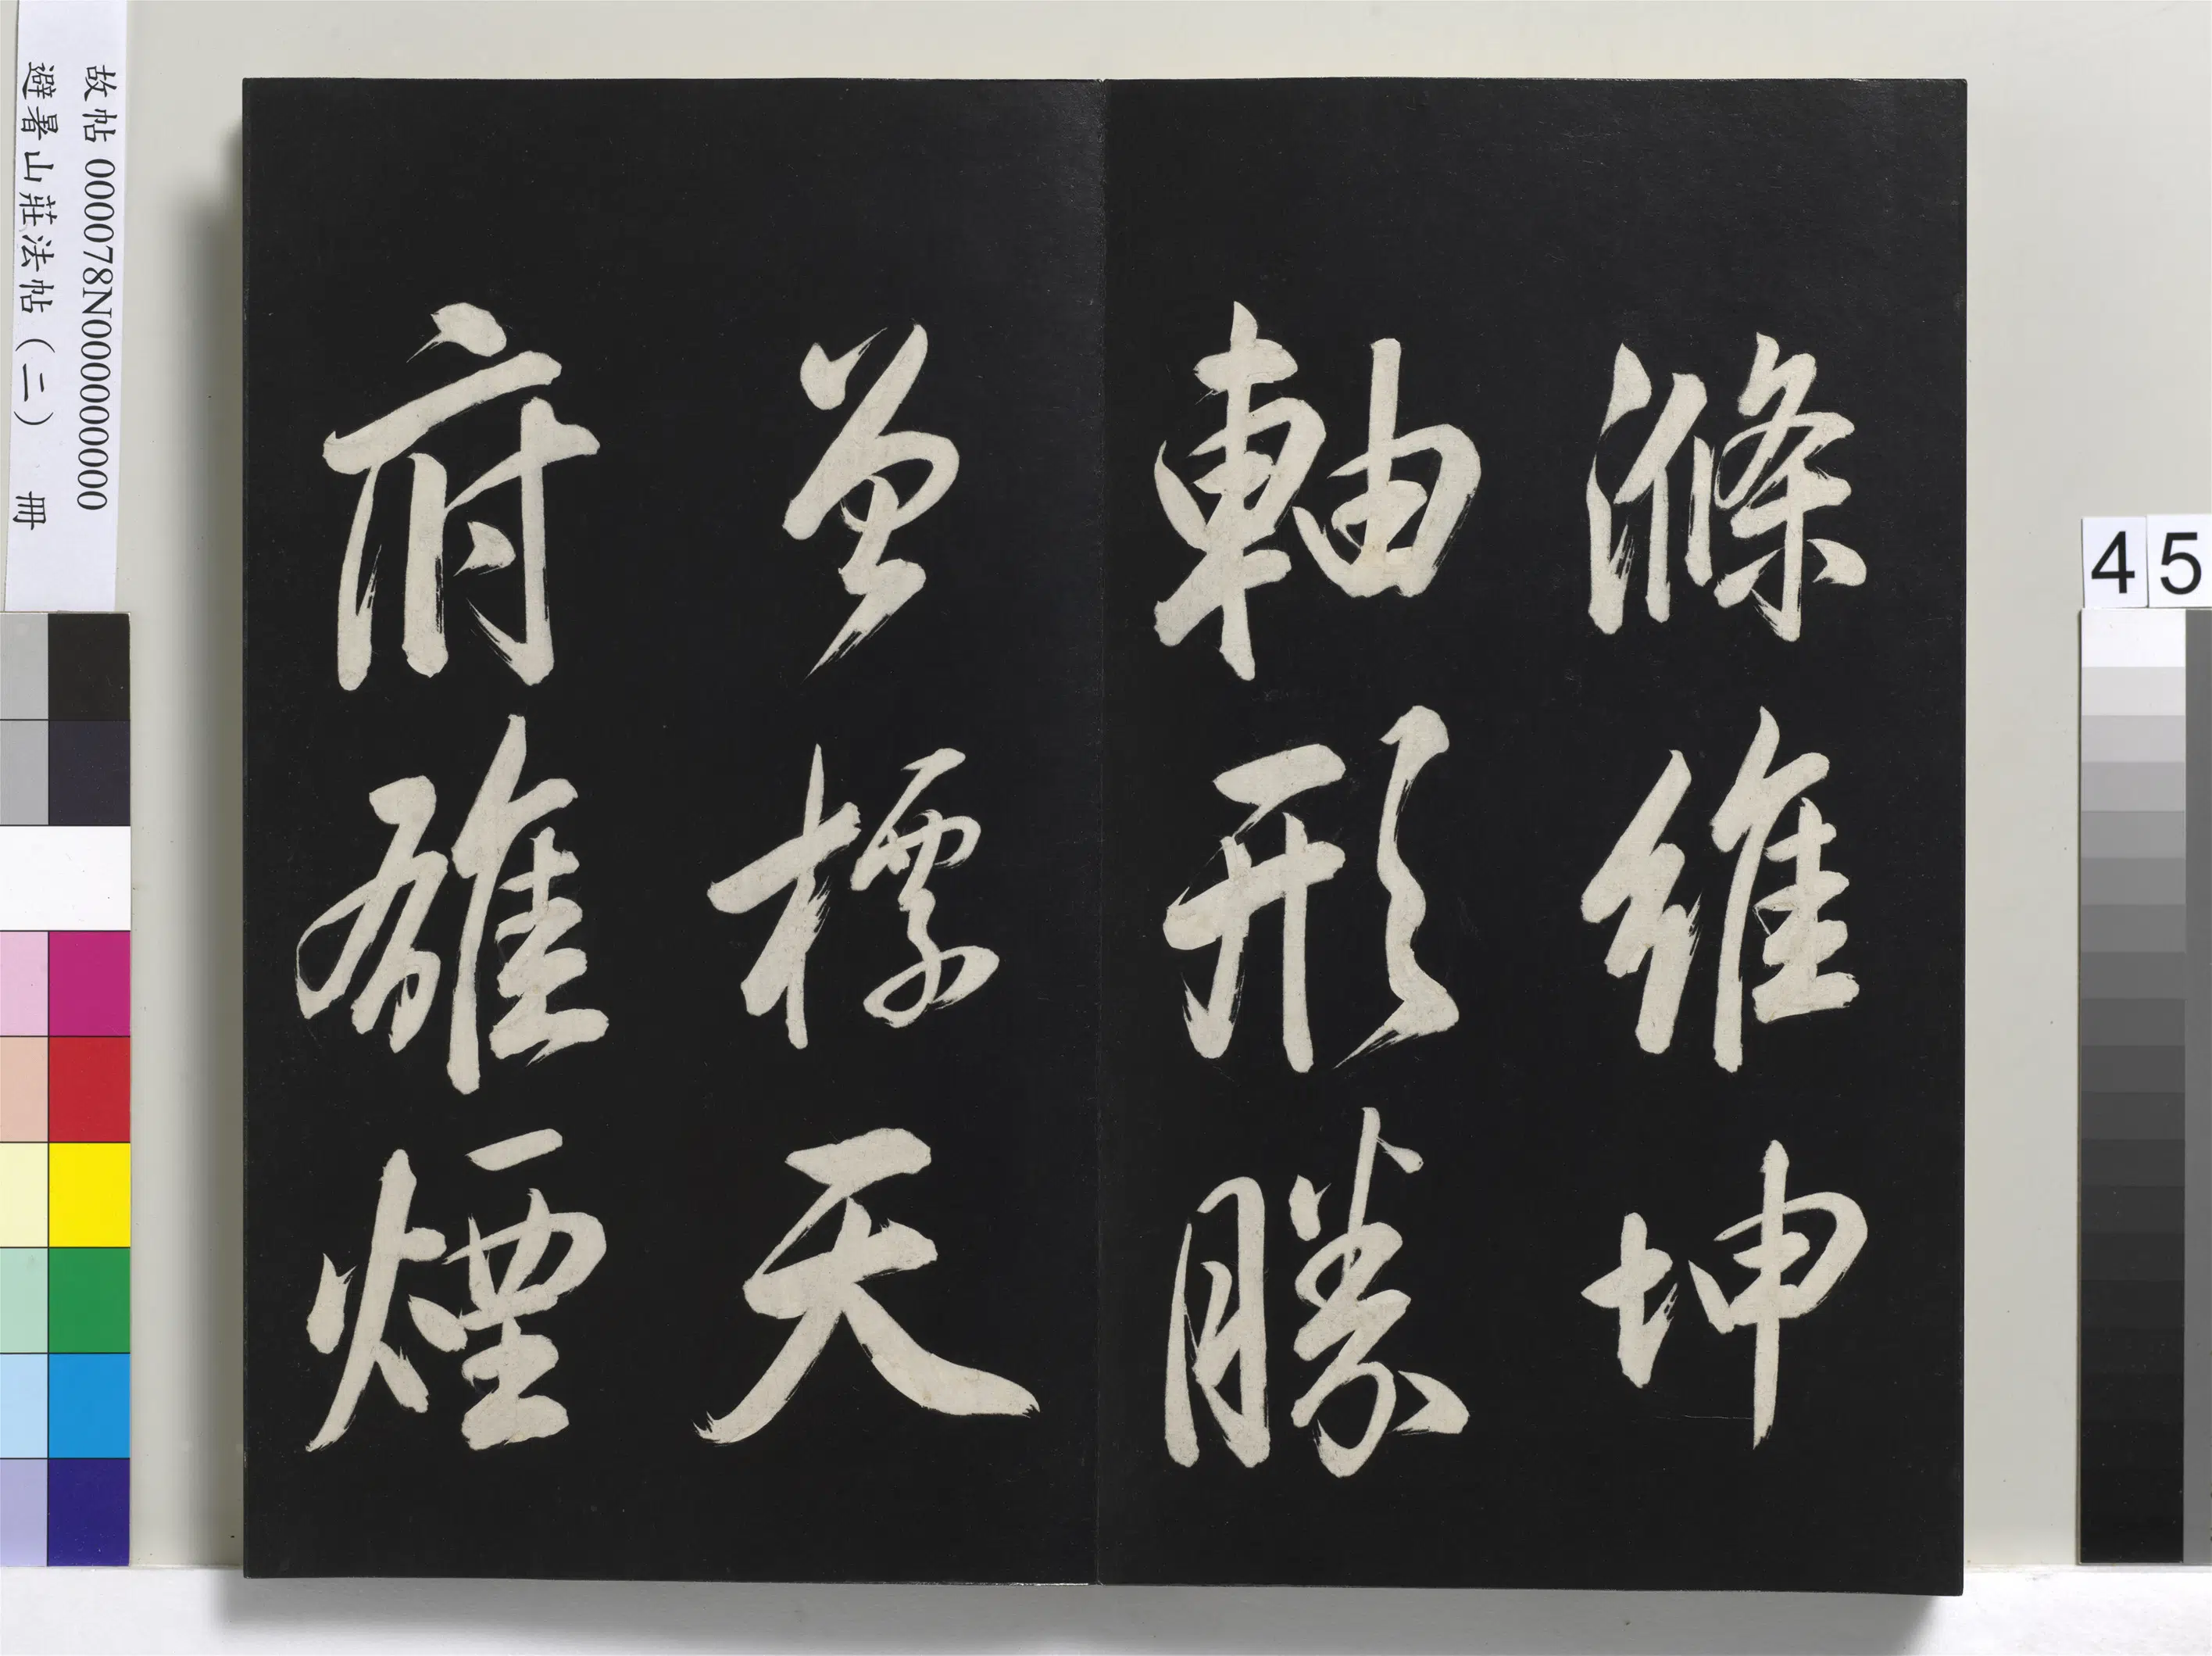 滌維坤
軸形勝
曾標天
府雄煙
故帖 000078N000000000
避暑山莊法帖（二） 冊
45